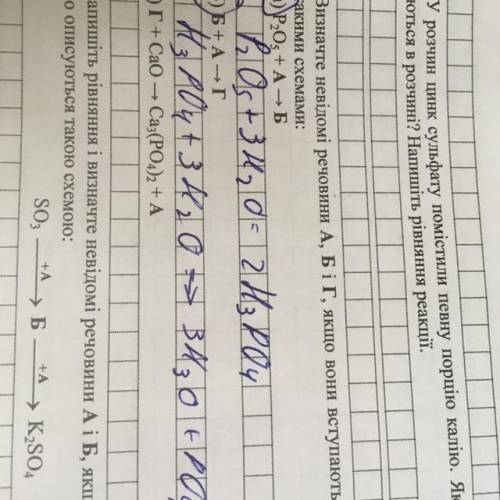 У розчин цинк сульфату помістили певну порцію калію.
ються в розчині? Напишіть рівняння реакції.
Визначте невідомі речовини А, Б і Г, якщо вони вступають
акими схемами:
P₂O₅ + A → Б
P₂O₅ + 3H₂O = 2H₃PO₄
Б + A → Г
H₃PO₄ + 3H₂O => 3H₃O + PO₄
Г + CaO → Ca₃(PO₄)₂ + A
апишіть рівняння і визначте невідомі речовини А і Б, якщ
о описуються такою схемою:
SO₃ +A → Б +A → K₂SO₄